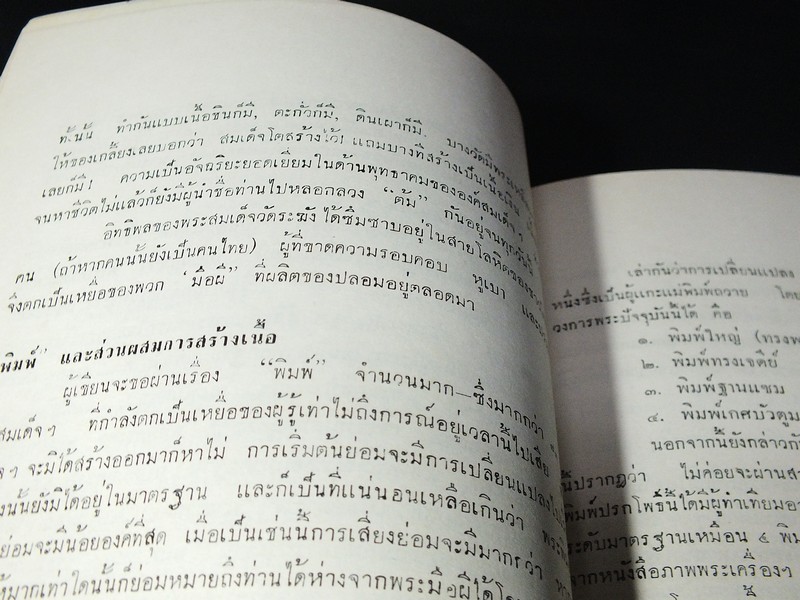 ทั้งนั้น ทำกันแบบเนื้อชินก็มี, ตะกั่วก็มี, ดินเผาก็มี. บางวัดมีพระ
ให้ของเกลี้ยงเลยบอกว่า สมเด็จโตสร้างไว้! แถมบางที่สร้างเป็นเนื้อ
เลยก็มี! ความเป็นอัจฉริยะยอดเยี่ยมในด้านพุทธาคมขององค์สมเด็จๆ
จนหาชีวิตไม่แล้วก็ยังมีผู้นำชื่อท่านไปหลอกลวง “ต้ม” กันอยู่จนทุกวันนี้
อิทธิพลของพระสมเด็จวัดระฆัง ได้ซึมซาบอยู่ในสายโลหิตของ
คน (ถ้าหากคนนั้นยังเป็นคนไทย) ผู้ที่ขาดความรอบคอบ หูเบา และ
จึงตกเป็นเหยื่อของพวก “มือผี” ที่ผลิตของปลอมอยู่ตลอดมา
พิมพ์” และส่วนผสมการสร้างเนื้อ
ผู้เขียนจะขอผ่านเรื่อง “พิมพ์” จำนวนมาก—ซึ่งมากกว่า
สมเด็จๆ ที่กำลังตกเป็นเหยื่อของผู้รู้เท่าไม่ถึงการณ์อยู่เวลานี้ไปเสีย
จๆ จะมิได้สร้างออกมาก็หาไม่ การเริ่มต้นย่อมจะมีการเปลี่ยนแปลงไป
งนั้นยังมิได้อยู่ในมาตรฐาน และก็เป็นที่แน่นอนเหลือเกินว่า
ย่อมจะมีน้อยองค์ที่สุด เมื่อเป็นเช่นนี้การเสี่ยงย่อมจะมีมากกว่า
มากเท่าใดนั้นก็ย่อมหมายถึงท่านได้ห่างจากพระมือผีได้
เล่ากันว่าการเปลี่ยนแปลง
หนึ่งซึ่งเป็นผู้แกะแม่พิมพ์ถวาย โดย
วงการพระปัจจุบันนี้ได้ คือ
๑. พิมพ์ใหญ่ (ทรงพ
๒. พิมพ์ทรงเจดีย์
๓. พิมพ์ฐานแซม
๔. พิมพ์เกศบัวตูม
นอกจากนี้ยังกล่าวกั
นี้ปรากฏว่า ไม่ค่อยจะผ่านสา
พิมพ์ปรกโพธิ์นี้ได้มีผู้ทำเทียมอ
ระดับมาตรฐานเหมือน ๔ พิม
จากหนังสือภาพพระเครื่องๆ